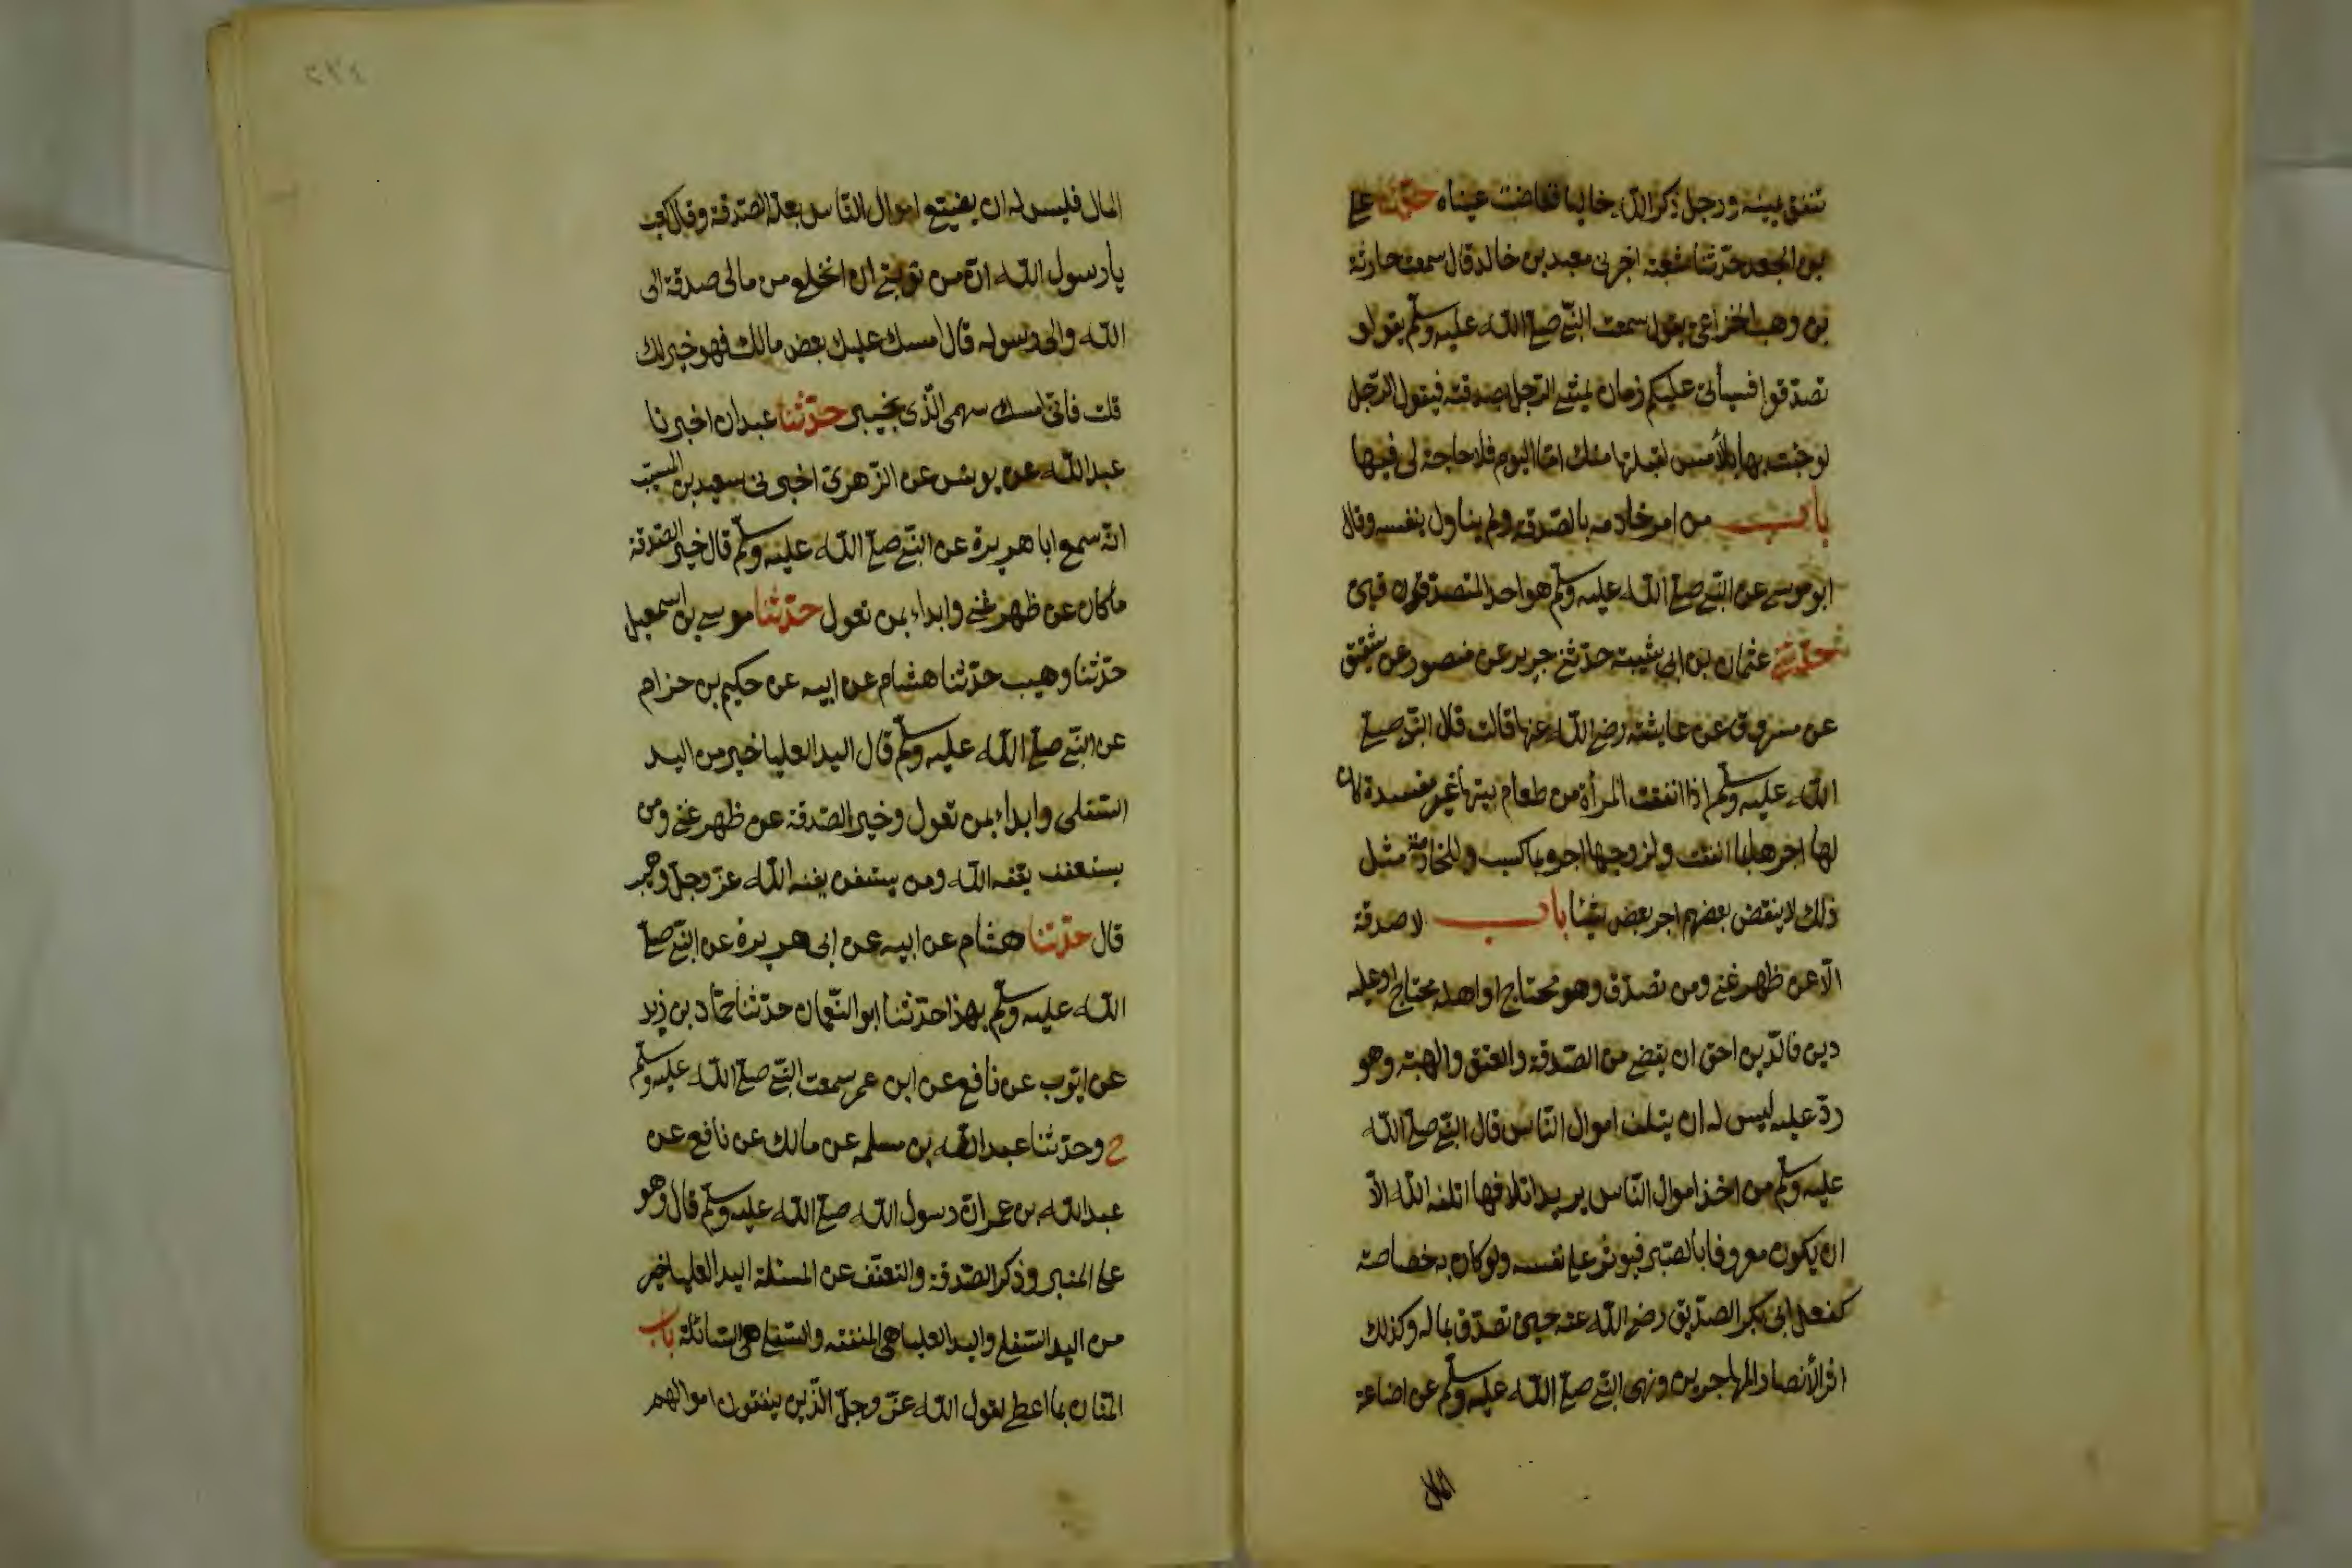 تنفق يمينه ورجل ذكر الله خاليا ففاضت عيناه حدثنا على
بن الجعد حدثنا شعبة اخبرنى معبد بن خالد قال سمعت حارثة
بن وهب الخزاعى يقول سمعت النبى صلى الله عليه وسلم يقول لو
تصدقوا فسيأتى عليكم زمان يمشى الرجل بصدقته فيقول الرجل
لو جئت بها بالأمس لقبلتها منك اما اليوم فلا حاجة لى فيها
باب من امر خادمه بالصدقة ولم يناول بنفسه وقال
ابو موسى عن النبى صلى الله عليه وسلم هو احد المتصدقون
حدثنى عثمان بن ابى شيبة حدثنى جرير عن منصور عن شقيق
عن مسروق عن عايشة رضى الله عنها قالت قال النبى صلى
الله عليه وسلم اذا انفقت المرأة من طعام بيتها غير مفسدة كان
لها اجرها بما انفقت ولزوجها اجره بما كسب وللخادمة مثل
ذلك لا ينقض بعضهم اجر بعض شيئا باب لا صدقة
الا عن ظهر غنى ومن تصدق وهو محتاج او اهله محتاج او عليه
دين فالدين احق ان يقضى من الصدقة والعتق والهبة وهو
رد عليه ليس له ان يتلف اموال الناس قال النبى صلى الله
عليه وسلم من اخذ اموال الناس يريد اتلافها اتلفه الله الا
ان يكون معروفا بالصبر فيوثر على نفسه ولو كان به خصاصة
كفعل ابى بكر الصديق رضى الله عنه حين تصدق بماله وكذلك
اثر الأنصار المهاجرين ونهى النبى صلى الله عليه وسلم عن اضاعة
المال
٢٣٤
المال فليس له ان يضيع اموال الناس بعلة الصدقة وقال كعب
يا رسول الله ان من توبتى ان انخلع من مالى صدقة الى
الله والى رسوله قال امسك عليك بعض مالك فهو خير لك
قلت فانى امسك سهمى الذى بخيبر حدثنا عبدان اخبرنا
عبد الله عن يونس عن الزهرى اخبرنى سعيد بن المسيب
انه سمع ابا هريرة عن النبى صلى الله عليه وسلم قال خير الصدقة
ما كان عن ظهر غنى وابداء بمن تعول حدثنا موسى بن اسمعيل
حدثنا وهيب حدثنا هشام عن ابيه عن حكيم بن حزام
عن النبى صلى الله عليه وسلم قال اليد العليا خير من اليد
السفلى وابداء بمن تعول وخير الصدقة عن ظهر غنى ومن
يستعفف يعفه الله ومن يستغن يغنه الله عز وجل
قال حدثنا هشام عن ابيه عن ابى هريرة عن النبى صلى
الله عليه وسلم بهذا حدثنا ابو النعمان حدثنا حماد بن زيد
عن ايوب عن نافع عن ابن عمر سمعت النبى صلى الله عليه وسلم
ح وحدثنا عبد الله بن مسلمه عن مالك عن نافع عن
عبد الله بن عمر ان رسول الله صلى الله عليه وسلم قال وهو
على المنبر وذكر الصدقة والتعفف عن المسئلة اليد العليا خير
من اليد السفلى واليد العليا هى المنفقه والسفلى هى السائلة باب
المنان بما اعطى لقول الله عز وجل الذين ينفقون اموالهم